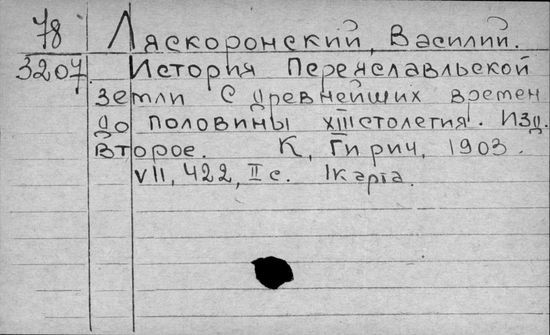 78 Ляскоронский, Василий.
3207 История Переяславльской
земли с древнейших времен
до половины XIII столетия. Изд.
второе. К, Гирич, 1903.
VII, 422, II с. 1 карта.